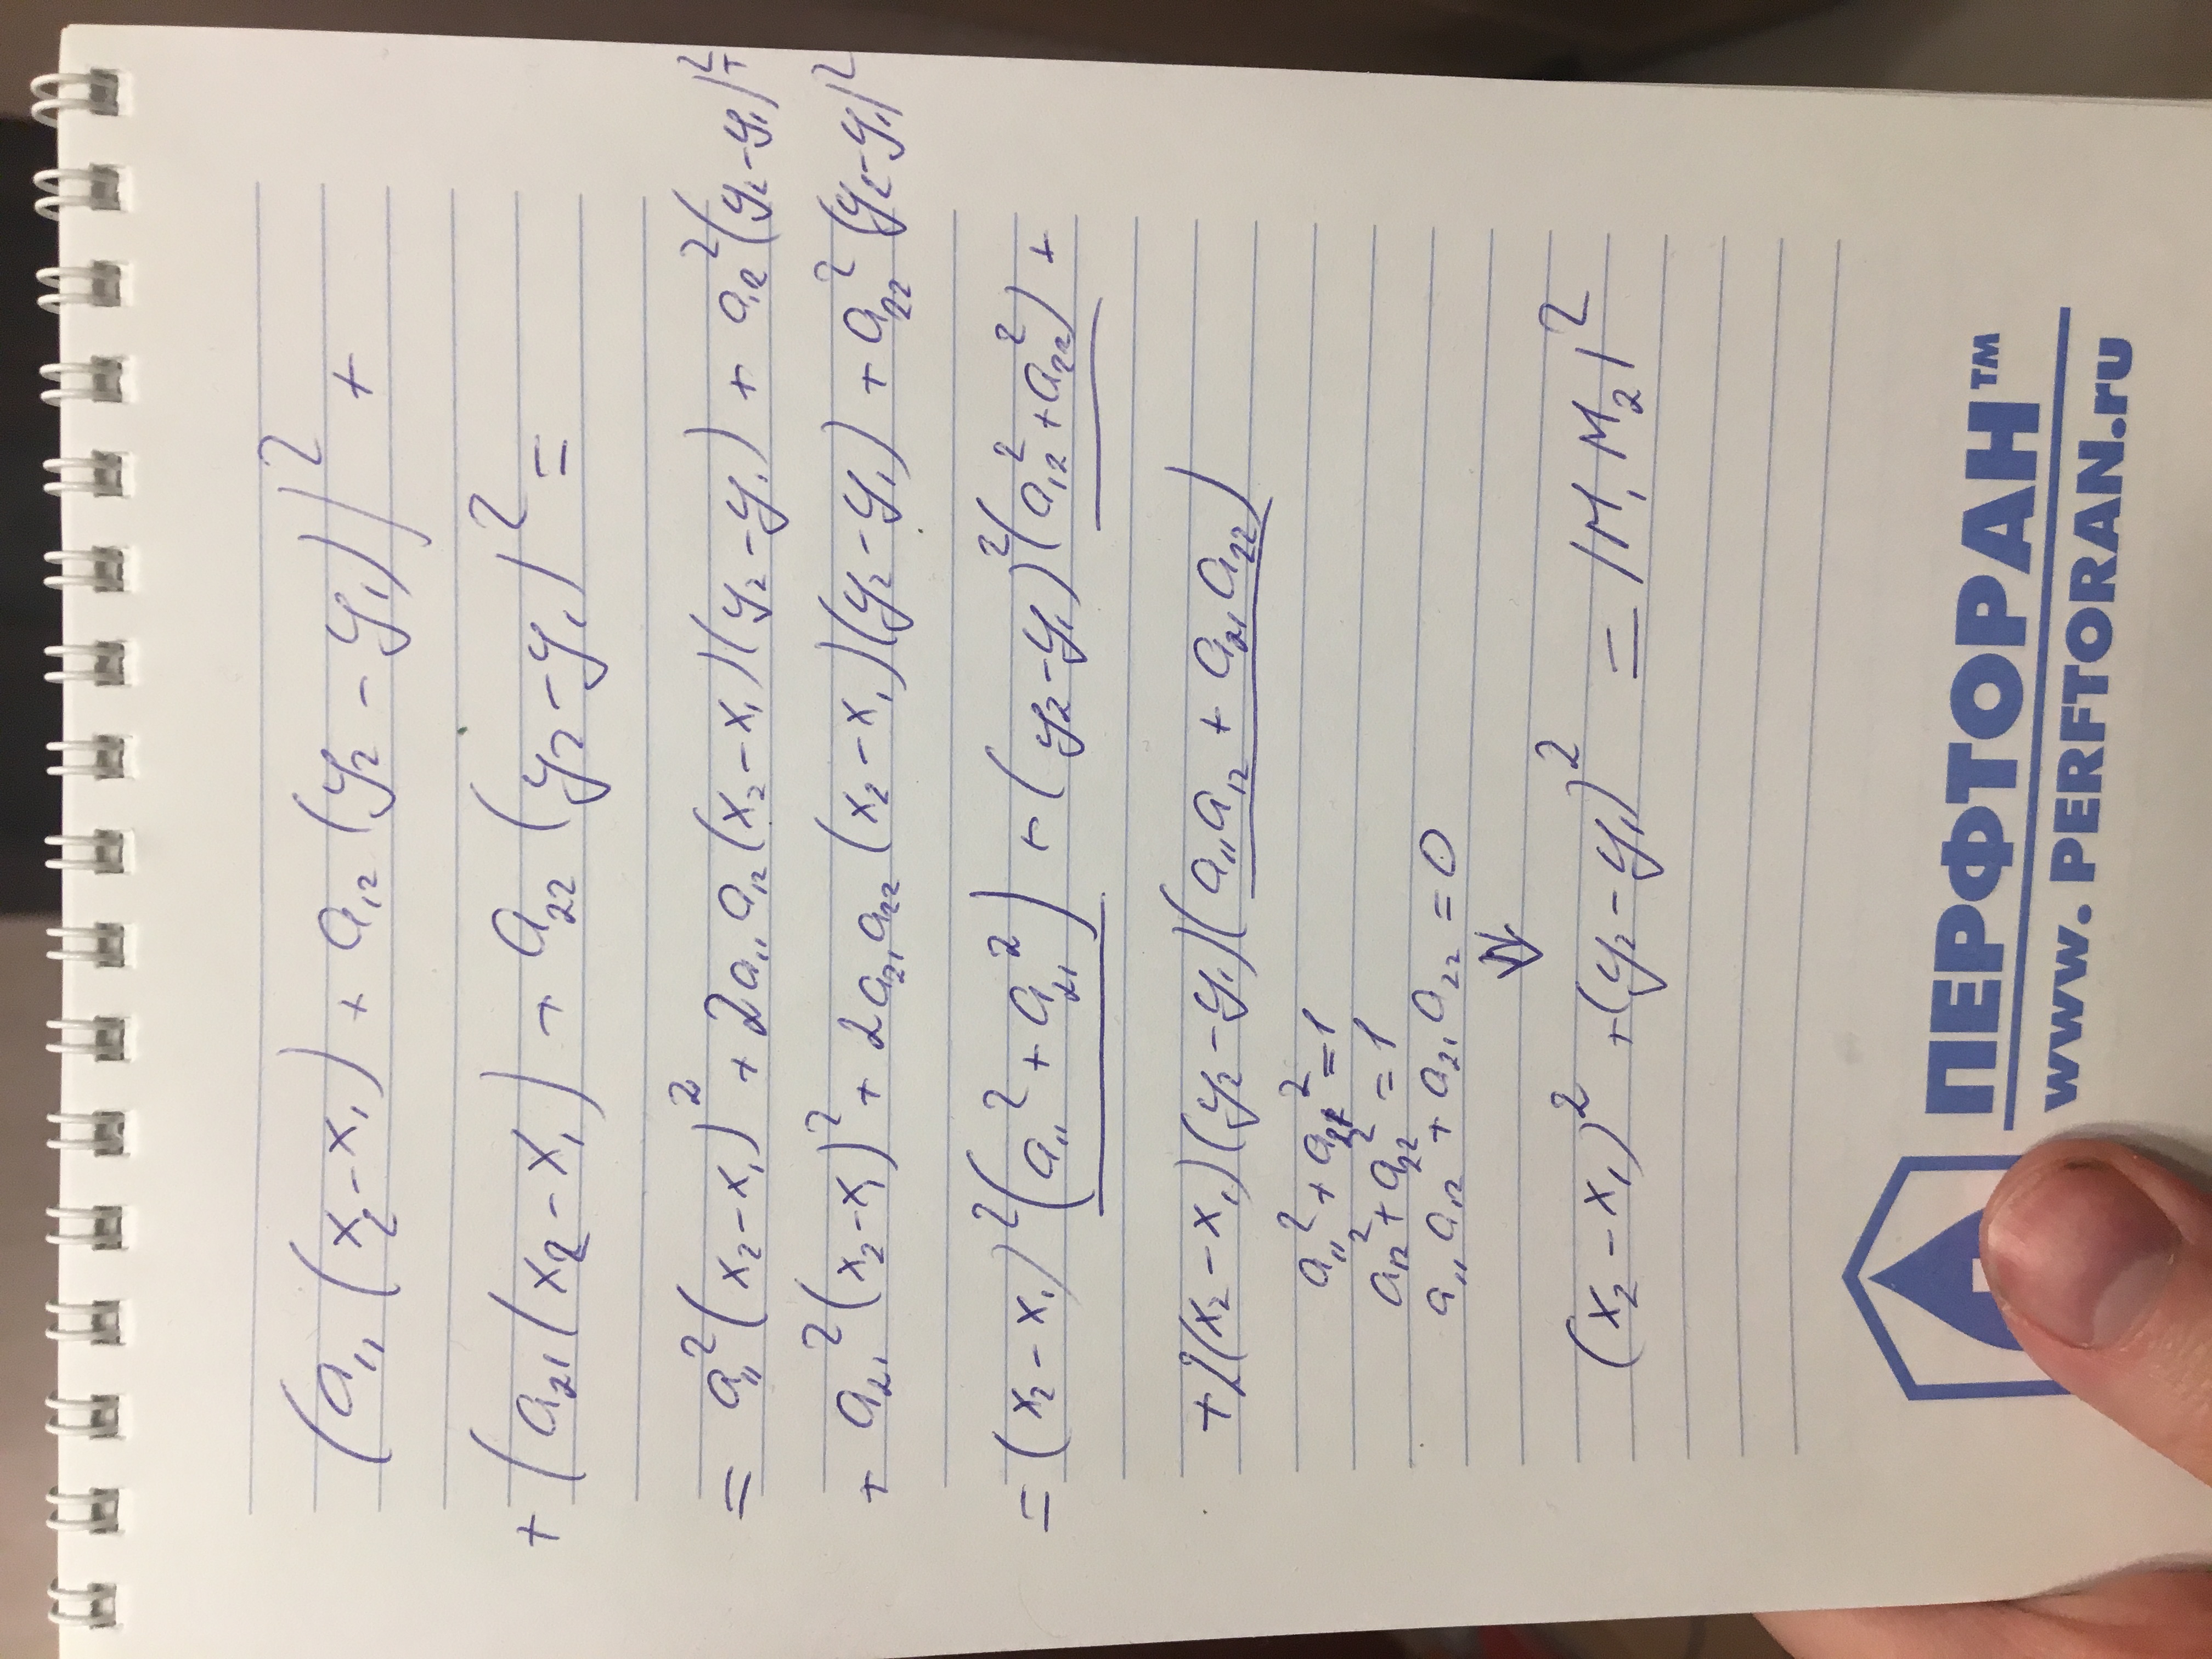 (a₁₁(x₂-x₁) + a₁₂(y₂-y₁))² +
+ (a₂₁(x₂-x₁) + a₂₂(y₂-y₁)² =
= a₁₁²(x₂-x₁)² + 2a₁₁a₁₂(x₂-x₁)(y₂-y₁) + a₁₂²(y₂-y₁)² +
+ a₂₁²(x₂-x₁)² + 2a₂₁a₂₂(x₂-x₁)(y₂-y₁) + a₂₂²(y₂-y₁)²
= (x₂-x₁)²(a₁₁² + a₂₁²) + (y₂-y₁)²(a₁₂² + a₂₂²) +
+2(x₂-x₁)(y₂-y₁)(a₁₁a₁₂ + a₂₁a₂₂)
a₁₁² + a₂₁² = 1
a₁₂² + a₂₂² = 1
a₁₁a₁₂ + a₂₁a₂₂ = 0
⇓
(x₂-x₁)² + (y₂-y₁)² = |M₁M₂|²
ПЕРФТОРАН™
www. PERFTORAN.ru